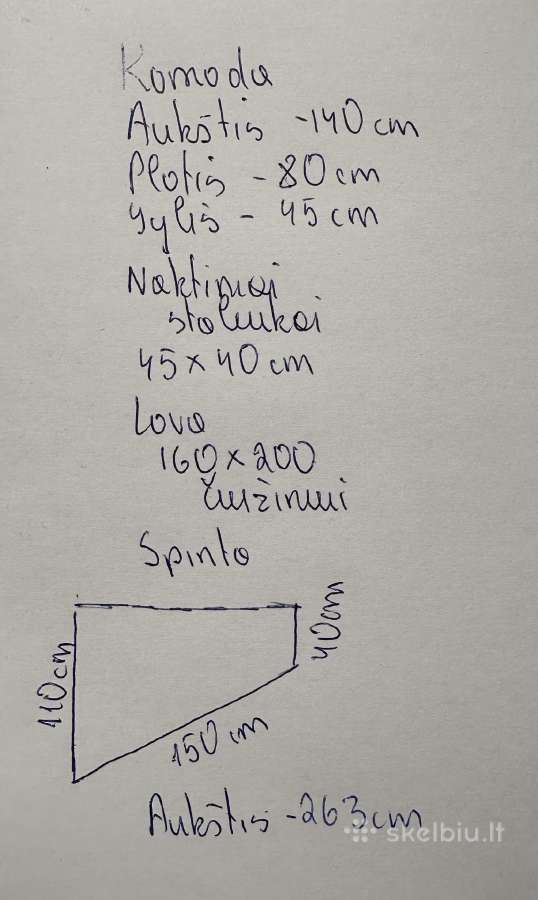 Komoda
Aukštis - 140 cm
Plotis - 80 cm
gylis - 45 cm
Naktiniai
staliukai
45 x 40 cm
Lova
160 x 200
čiužiniui
Spinta
40cm
110cm
150 cm
Aukštis - 263 cm
skelbiu.lt